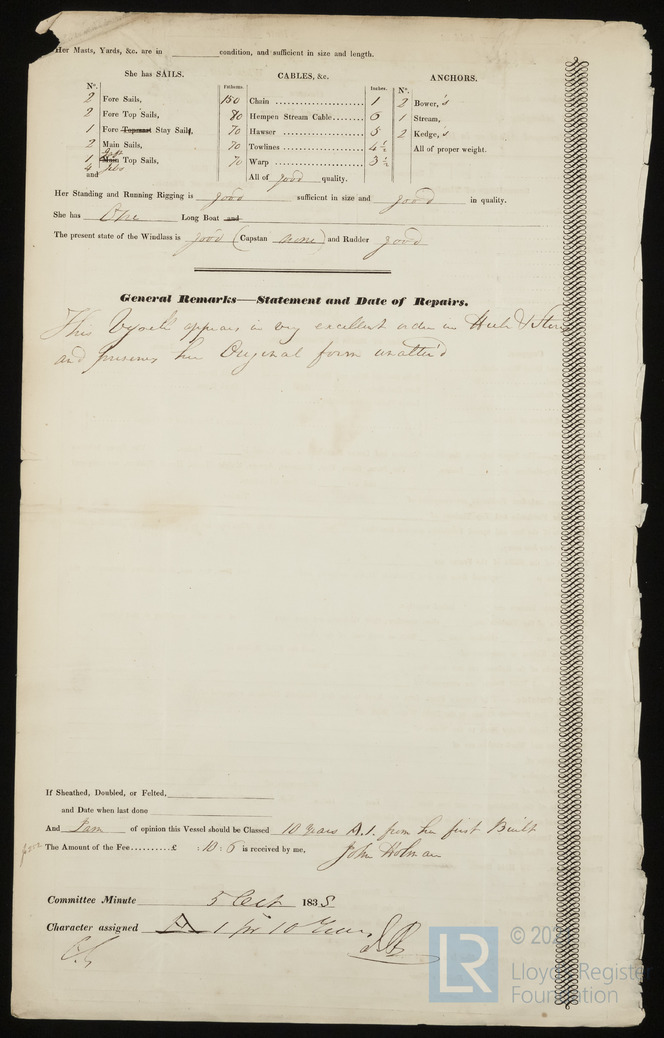 Her Masts, Yards, &c. are in condition, and sufficient in size and length.
She has SAILS. CABLES, &c. ANCHORS.
No. Fathoms. Inches. No.
2 Fore Sails, 150 Chain 1 2 Bower,'s
2 Fore Top Sails, 80 Hempen Stream Cable 6 1 Stream,
1 Fore Topmast Stay Sail, 70 Hawser 5 2 Kedge,'s
2 Main Sails, 70 Towlines 4 1/2 All of proper weight.
Gaff
1 Main Top Sails, 70 Warp 3 1/2
4 Jibs
and All of good quality.
Her Standing and Running Rigging is good sufficient in size and good in quality.
She has One Long Boat and
The present state of the Windlass is good (Capstan none) and Rudder good
General Remarks—Statement and Date of Repairs.
This Vessell appears in very excellent order in
and preserves her Original form unalter'd
If Sheathed, Doubled, or Felted,
and Date when last done
And I am of opinion this Vessel should be Classed 10 Years A.1. from her first Built
The Amount of the Fee..........£ :10:6 is received by me,
John Holman
Committee Minute 5 Oct 1838
Character assigned A 1 for 10 Years
© 202
Lloyd's Register
Foundation
LR
6